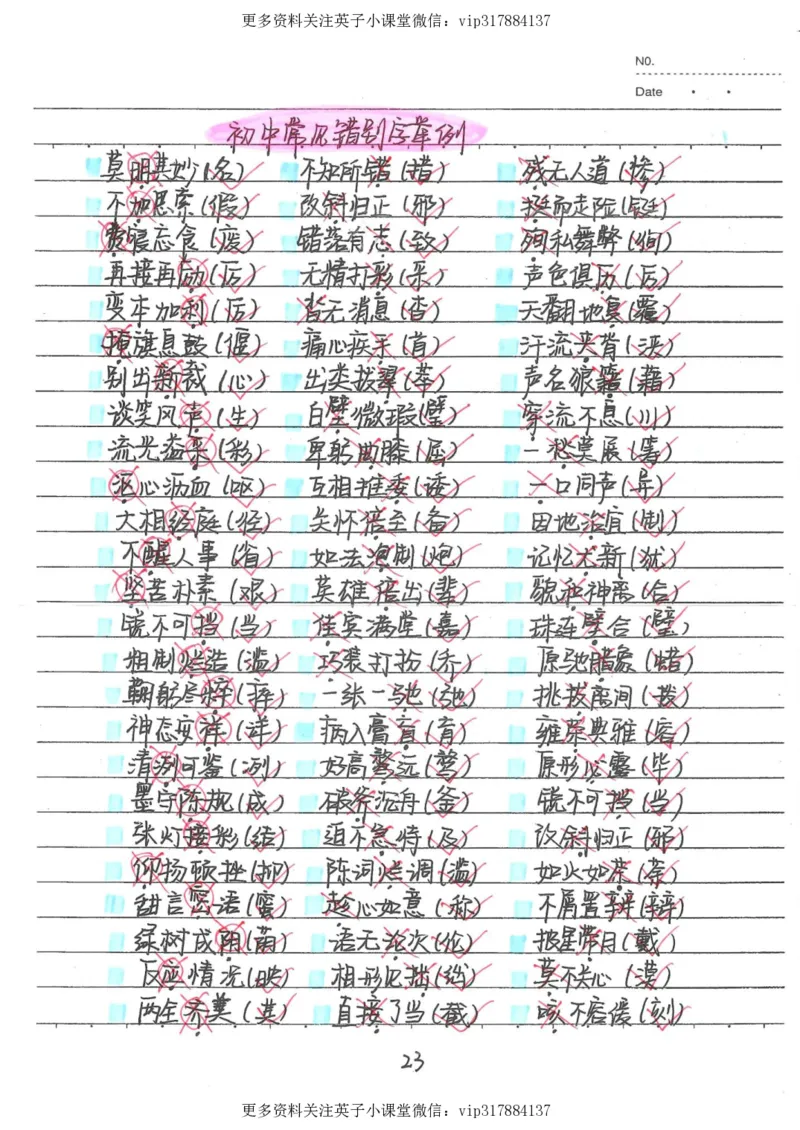 更多资料关注英子小课堂微信：vip317884137
N0.
Date
初中常见错别字举例
莫明其妙(名) 不知所错(措) 残无人道(惨)
不加思索(假) 改斜归正(邪) 挺而走险(铤)
费寝忘食(废) 错落有志(致) 殉私舞弊(徇)
再接再励(厉) 无精打彩(采) 声色俱历(厉)
变本加利(厉) 皆无消息(杳) 天翻地复(覆)
掩旗息鼓(偃) 痛心疾手(首) 汗流夹背(浃)
别出新裁(心) 出类拔翠(萃) 声名狼籍(藉)
谈笑风声(生) 白壁微瑕(璧) 穿流不息(川)
流光益采(彩) 卑躬曲膝(屈) 一愁莫展(筹)
沤心沥血(呕) 互相推委(诿) 一口同声(异)
大相经庭(径) 关怀倍至(备) 因地治宜(制)
不醒人事(省) 如法泡制(炮) 记忆尤新(犹)
坚苦朴素(艰) 英雄倍出(辈) 貌和神离(合)
锐不可挡(当) 佳宾满堂(嘉) 珠连壁合(璧)
粗制烂造(滥) 巧装打扮(乔) 原驰腊象(蜡)
鞠躬尽粹(瘁) 一张一驰(弛) 挑拔离间(拨)
神态安祥(详) 病入膏盲(肓) 雍荣典雅(容)
清洌可鉴(冽) 好高鹜远(骛) 原形必露(毕)
墨守陈规(成) 破斧沉舟(釜) 锐不可挡(当)
张灯接彩(结) 迫不急待(及) 改斜归正(邪)
仰扬顿挫(抑) 陈词烂调(滥) 如火如荣(荼)
甜言密语(蜜) 趁心如意(称) 不屑置辩(辩)
绿树成阴(荫) 语无论次(伦) 披星带月(戴)
反应情况(映) 相形见拙(绌) 莫不关心(漠)
两全齐美(其) 直接了当(截) 咳不容缓(刻)
23
更多资料关注英子小课堂微信：vip317884137